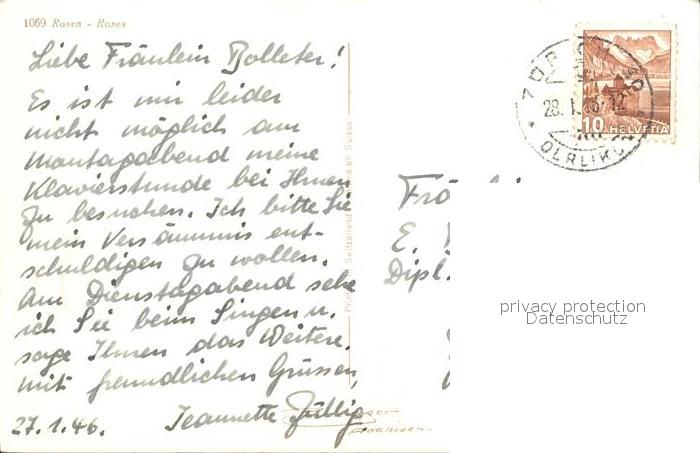 1069 Rosen - Roses
Liebe Fräulein Bolleter!
Es ist mir leider
nicht möglich am
Montagabend meine
Klavierstunde bei Ihnen
zu besuchen. Ich bitte Sie
mein Versäumnis ent-
schuldigen zu wollen.
Am Dienstagabend sehe
ich Sie beim Singen u.
sage Ihnen das Weitere.
Mit freundlichen Grüssen,
Jeannette Züllig
27.1.46.
Switzerland
Suisse
28.I.46.-12
OERLIKON
10 HELVETIA
Frä
E.
Dipl.
privacy protection
Datenschutz